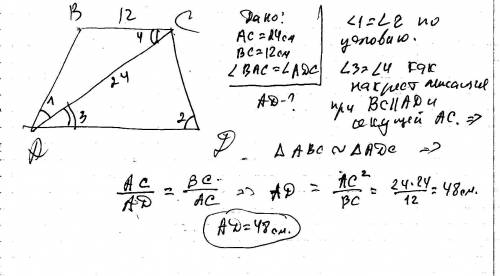 B 12 C
4
24
1
3
2
A
D
Дано:
AC = 24 см
BC = 12 см
∠BAC = ∠ADC
AD - ?
∠1 = ∠2 по
условию.
∠3 = ∠4 как
накрест лежащие
при BC || AD и
секущей AC. ⇒
△ABC ~ △ADC ⇒
AC/AD = BC/AC ⇒ AD = AC²/BC = 24·24/12 = 48 см.
AD = 48 см.